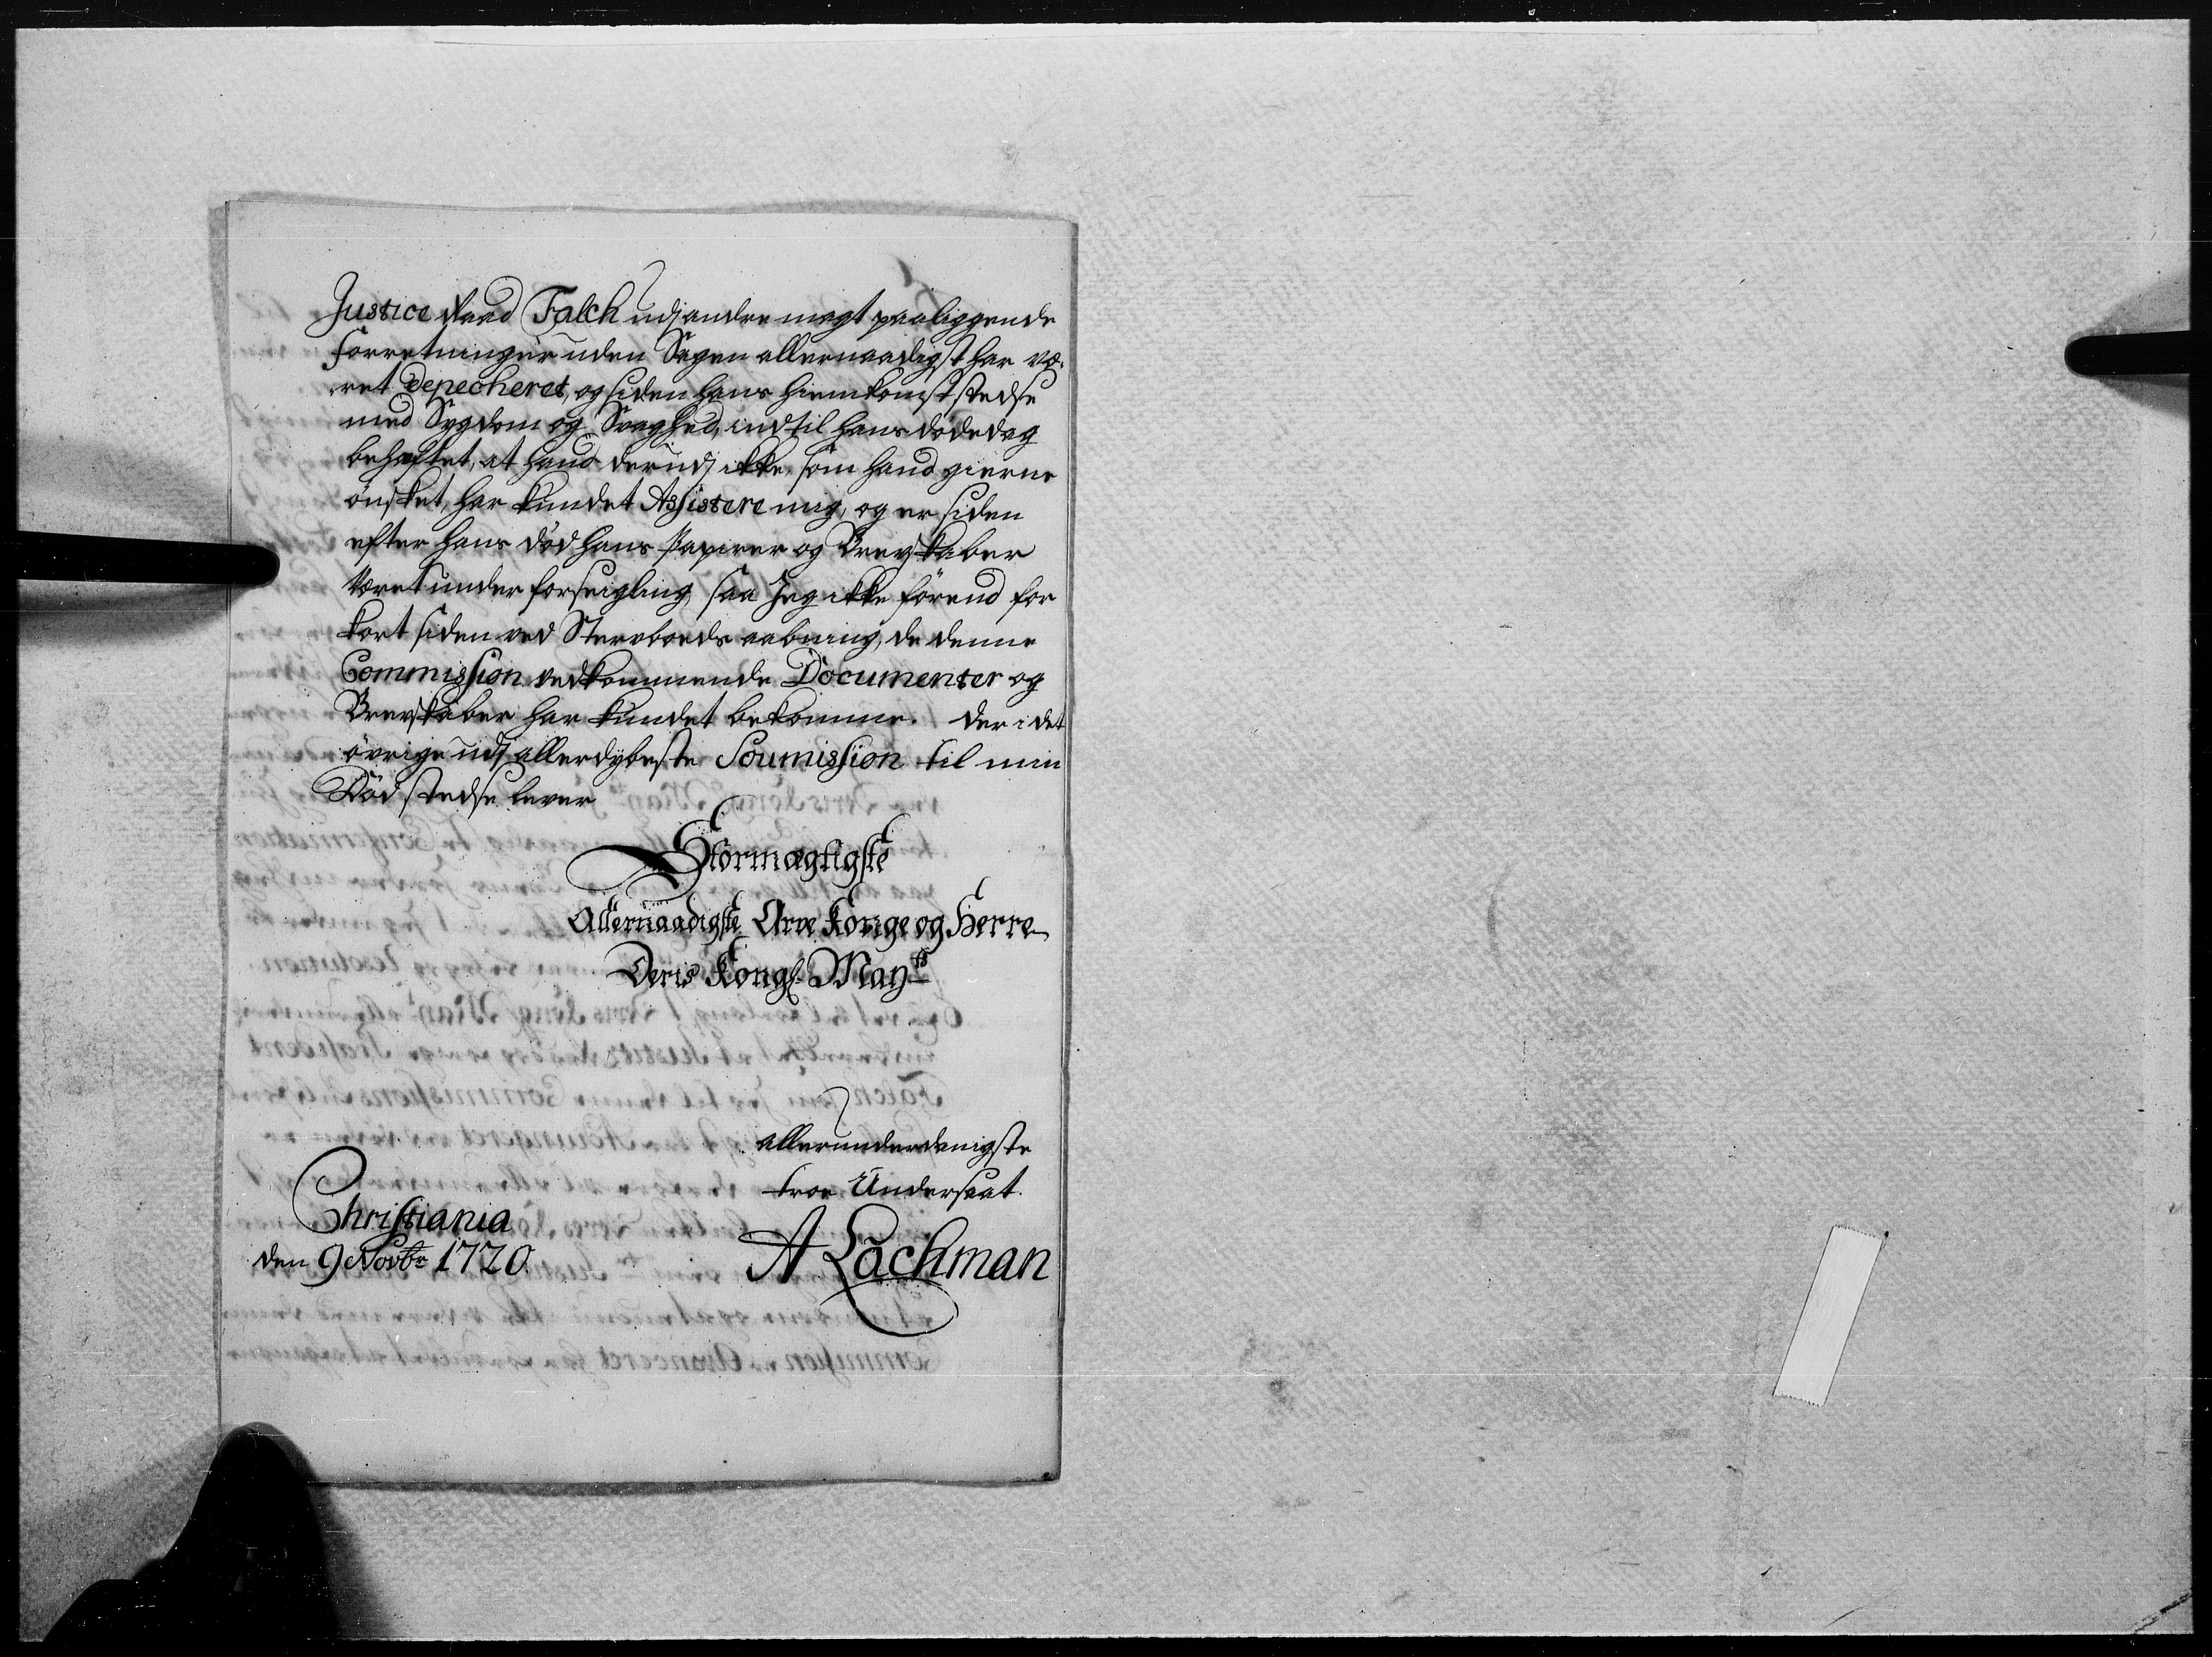 Justice Raad Falch udj andre magt paaliggende
forretninger uden Segen allernaadigst har væ¬
ret depecheret, og siden hans hiemkomst stedse
med Sygdom og Svaghed, indtil hans dödedag
behæftet, at hand derudj ikke, som hand gierne
önsket, har kundet Assistere mig, og er siden
efter hans död hans Papirer og Brevskaber
været under forseigling, saa Jeg ikke förend for
kort siden ved Stervboeds aabning, de denne
Commission vedkommende Documenter og
Brevskaber har kundet bekomme. der i det
övrige udj allerdybeste Soumission til min
Död stedse lever
Stormægtigste
Allernaadigste Arve Konge og Herre
Deris Kongl. Mayts
allerunderdanigste
troe Undersaat.
Christiania
den 9 Novbr 1720.
A Lachman